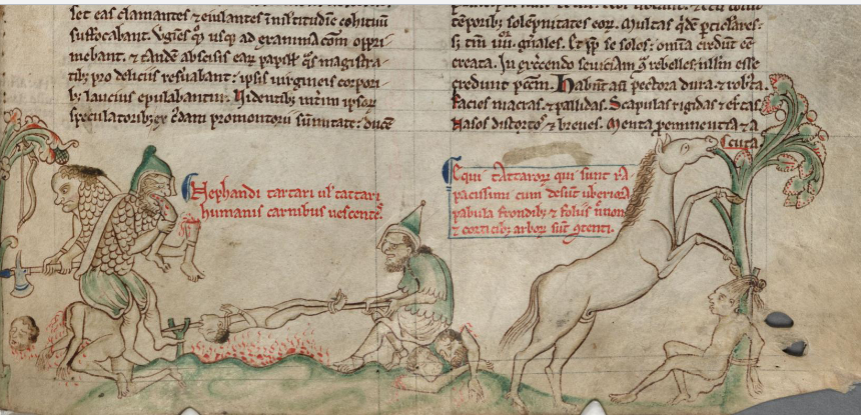 set eas clamantes ⁊ eiulantes in multitudīe cohituū
suffocabant. Vgīes q̄ usq; ad exanimac̄om oppri
mebant. ⁊ tandē abscisis eaꝝ papiƚƚ q̄s magistra
tib; pro deliciis res̄uabant: ipsis virgineis corpori
b; lauciꝰ epulabantur. Videntib; int̄im ipsoꝝ
speculatorib; ex promontorii sūmitate: duce
tēporib; solēpnitates eoꝝ. Multas q̇dē ꝑticlares:
s; tm̄ iiii. gn̄ales. Et ꝓp̄ se solos: omīa credūt eē
creata. In exercendo seuiciam ī rebelles: nllm̄ esse
credunt pc̄cm. Habn̄t aū pectora dura ⁊ rob̾ta.
Facies macras ⁊ pallidas. Scapulas rigidas ⁊ er̄ctas.
Nasos distortos ⁊ breues. Menta p̄eminentia ⁊ a
cuta
Nephandi tartari uƚ tattari
humanis carnibus uescentes.
Equi tattaroꝝ qui sunt ra
pacissimi cum desūt uberiora
pabula frondib; ⁊ foliis
⁊ corticib; arboꝝ sūt ꝯtenti.